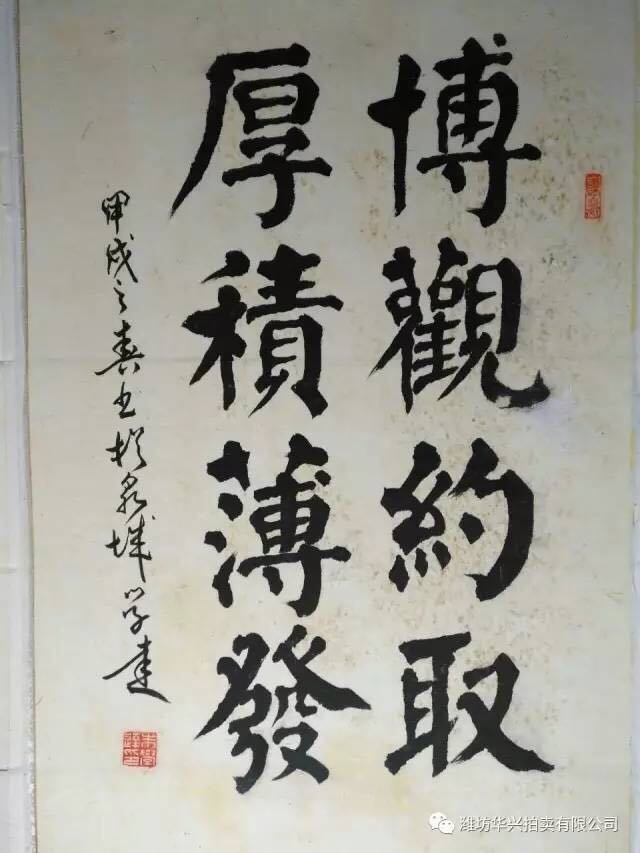 博觀約取
厚積薄發
甲戌之春书於泉城学達
潍坊华兴拍卖有限公司